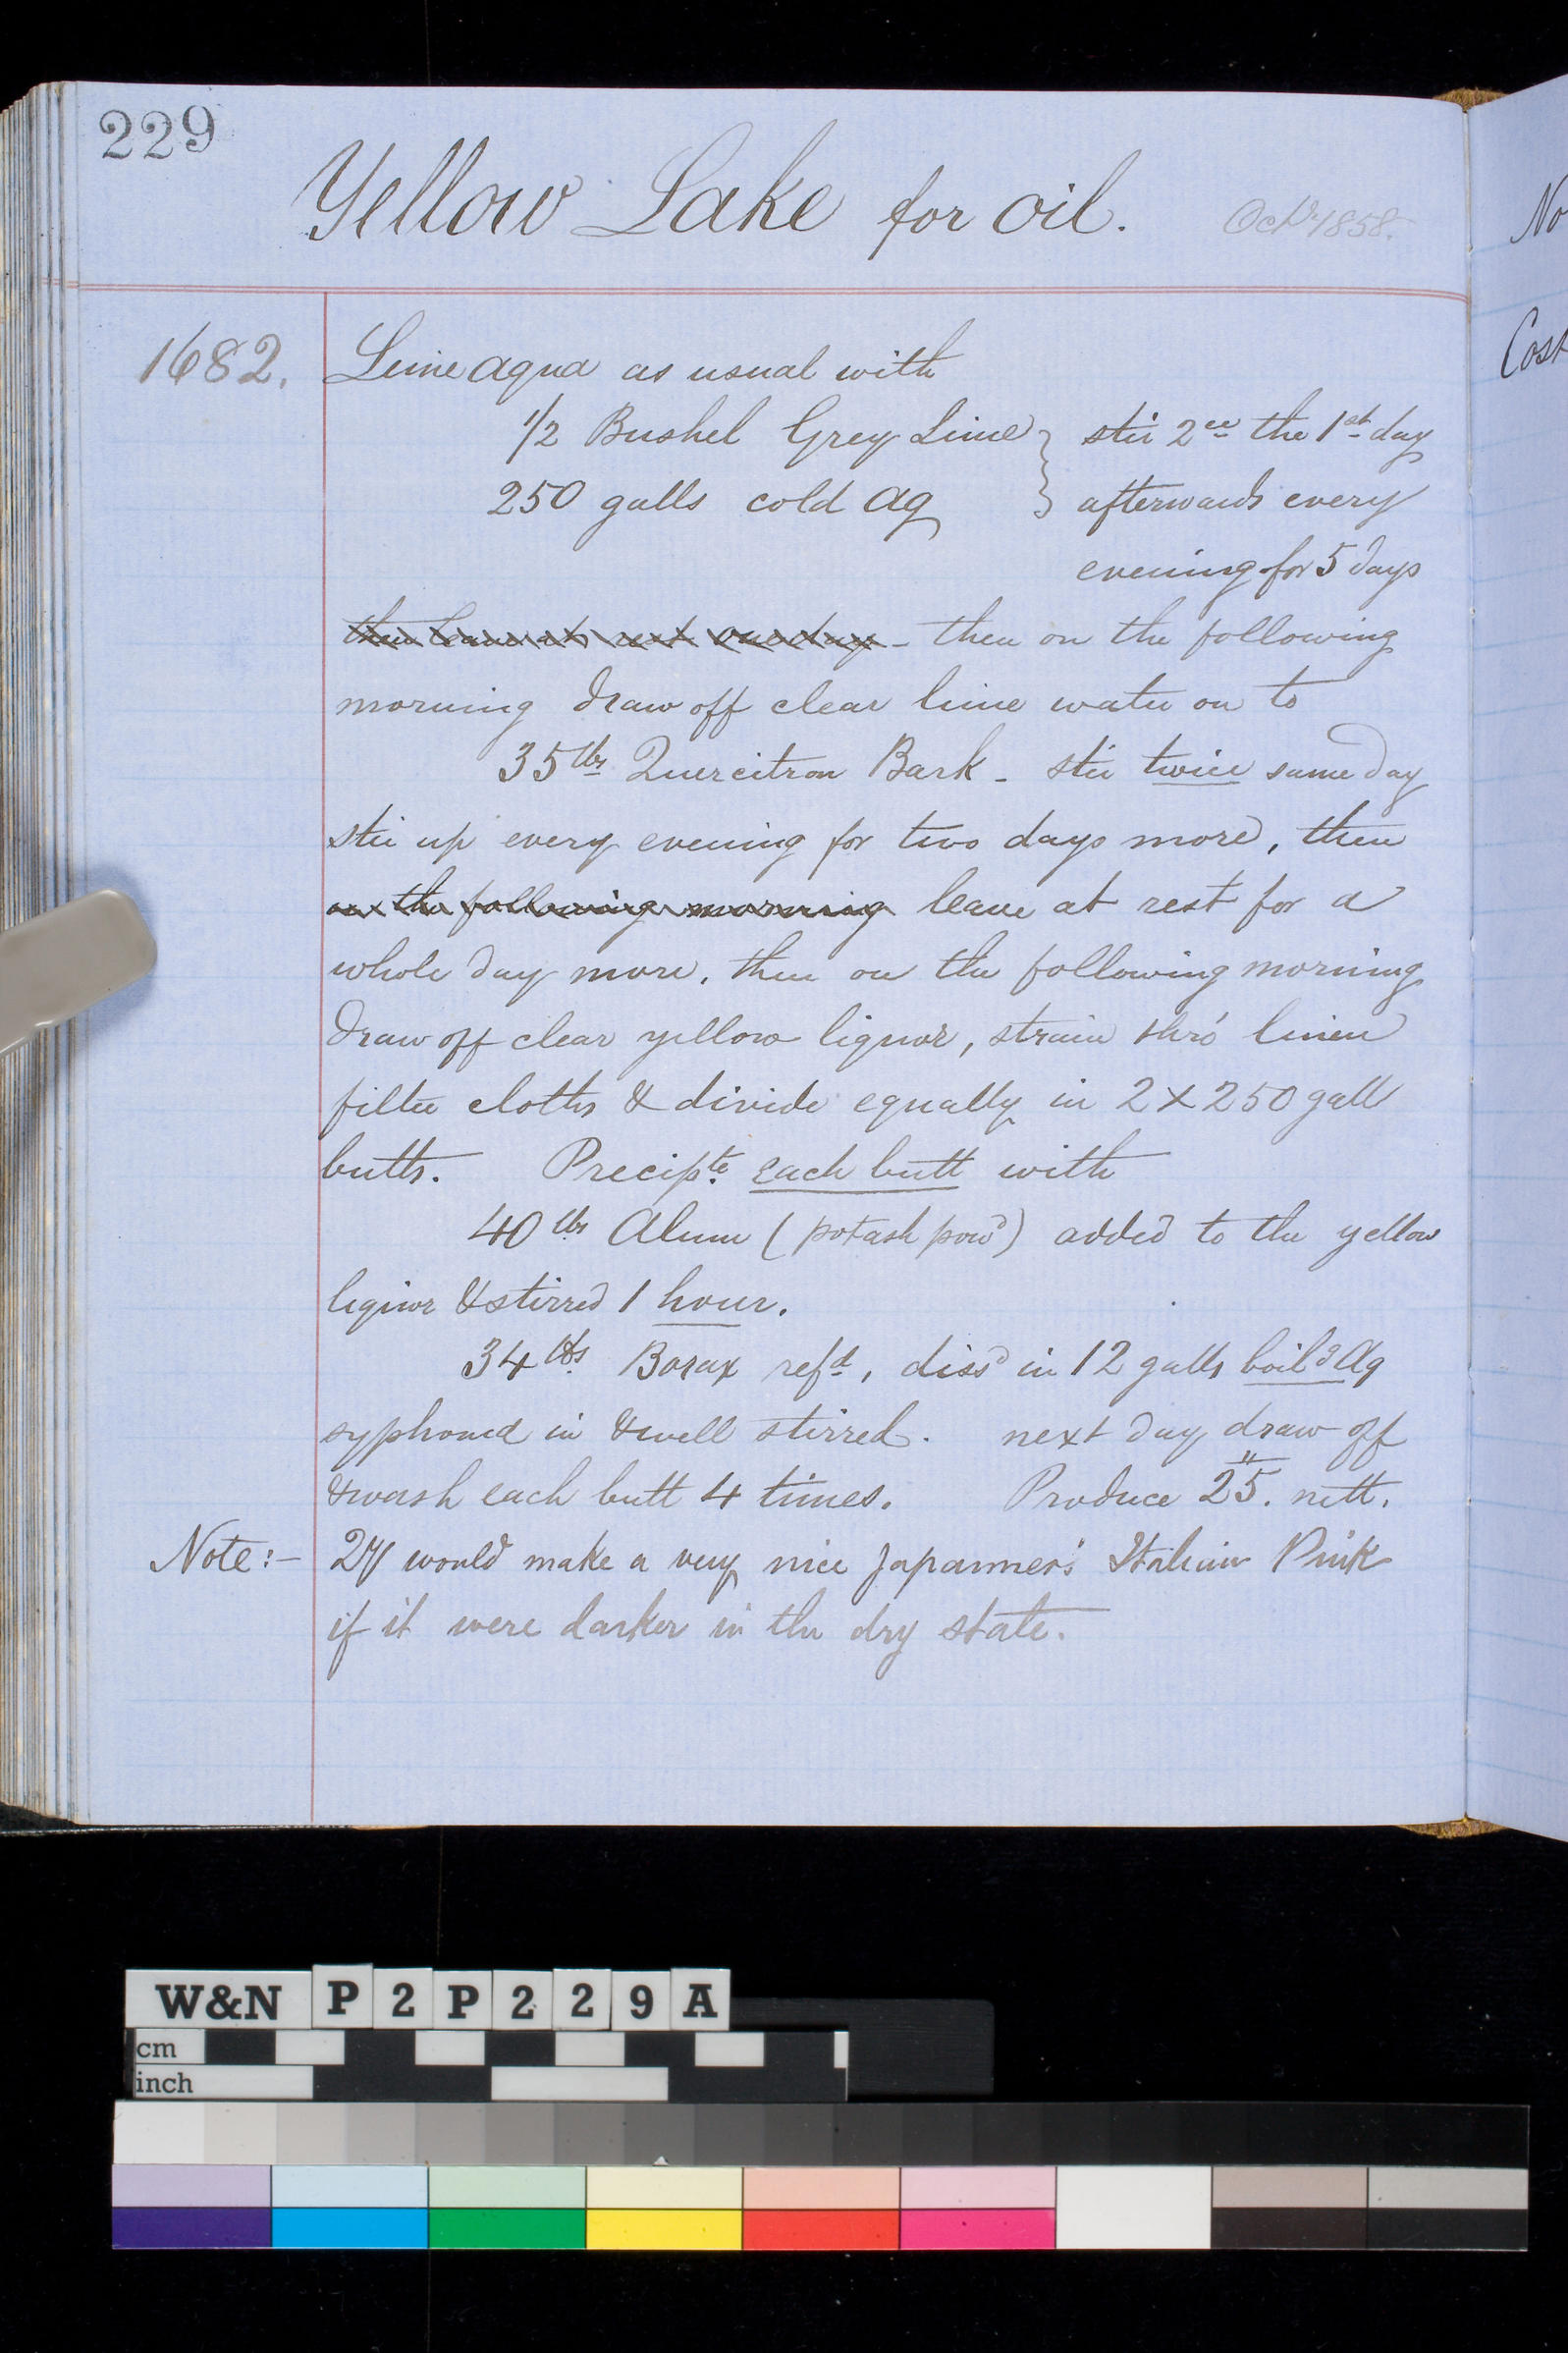 229
Yellow Lake for oil. Oct 1858.
1682. Lime aqua as usual with
1/2 Bushel Grey Lime } stir 2ce the 1st day
250 galls cold aq } afterwards every
evening for 5 days
then leave at rest one day - then on the following
morning draw off clear lime water on to
35 lbs Quercitron Bark - stir twice same day
stir up every evening for two days more, then
on the following morning leave at rest for a
whole day more, then on the following morning
draw off clear yellow liquor, strain thro' linen
filter cloths & divide equally in 2 x 250 gall
butts. Precipte each butt with
40 lbs Alum (potash powd) added to the yellow
liquor & stirred 1 hour.
34 lbs Borax refd, dissd in 12 galls boilg Aq
syphoned in & well stirred. next day draw off
& wash each butt 4 times. Produce 25". nett.
Note:- would make a very nice Japanner's Italian Pink
if it were darker in the dry state.
No
Cost
W&N P2P229A
cm
inch